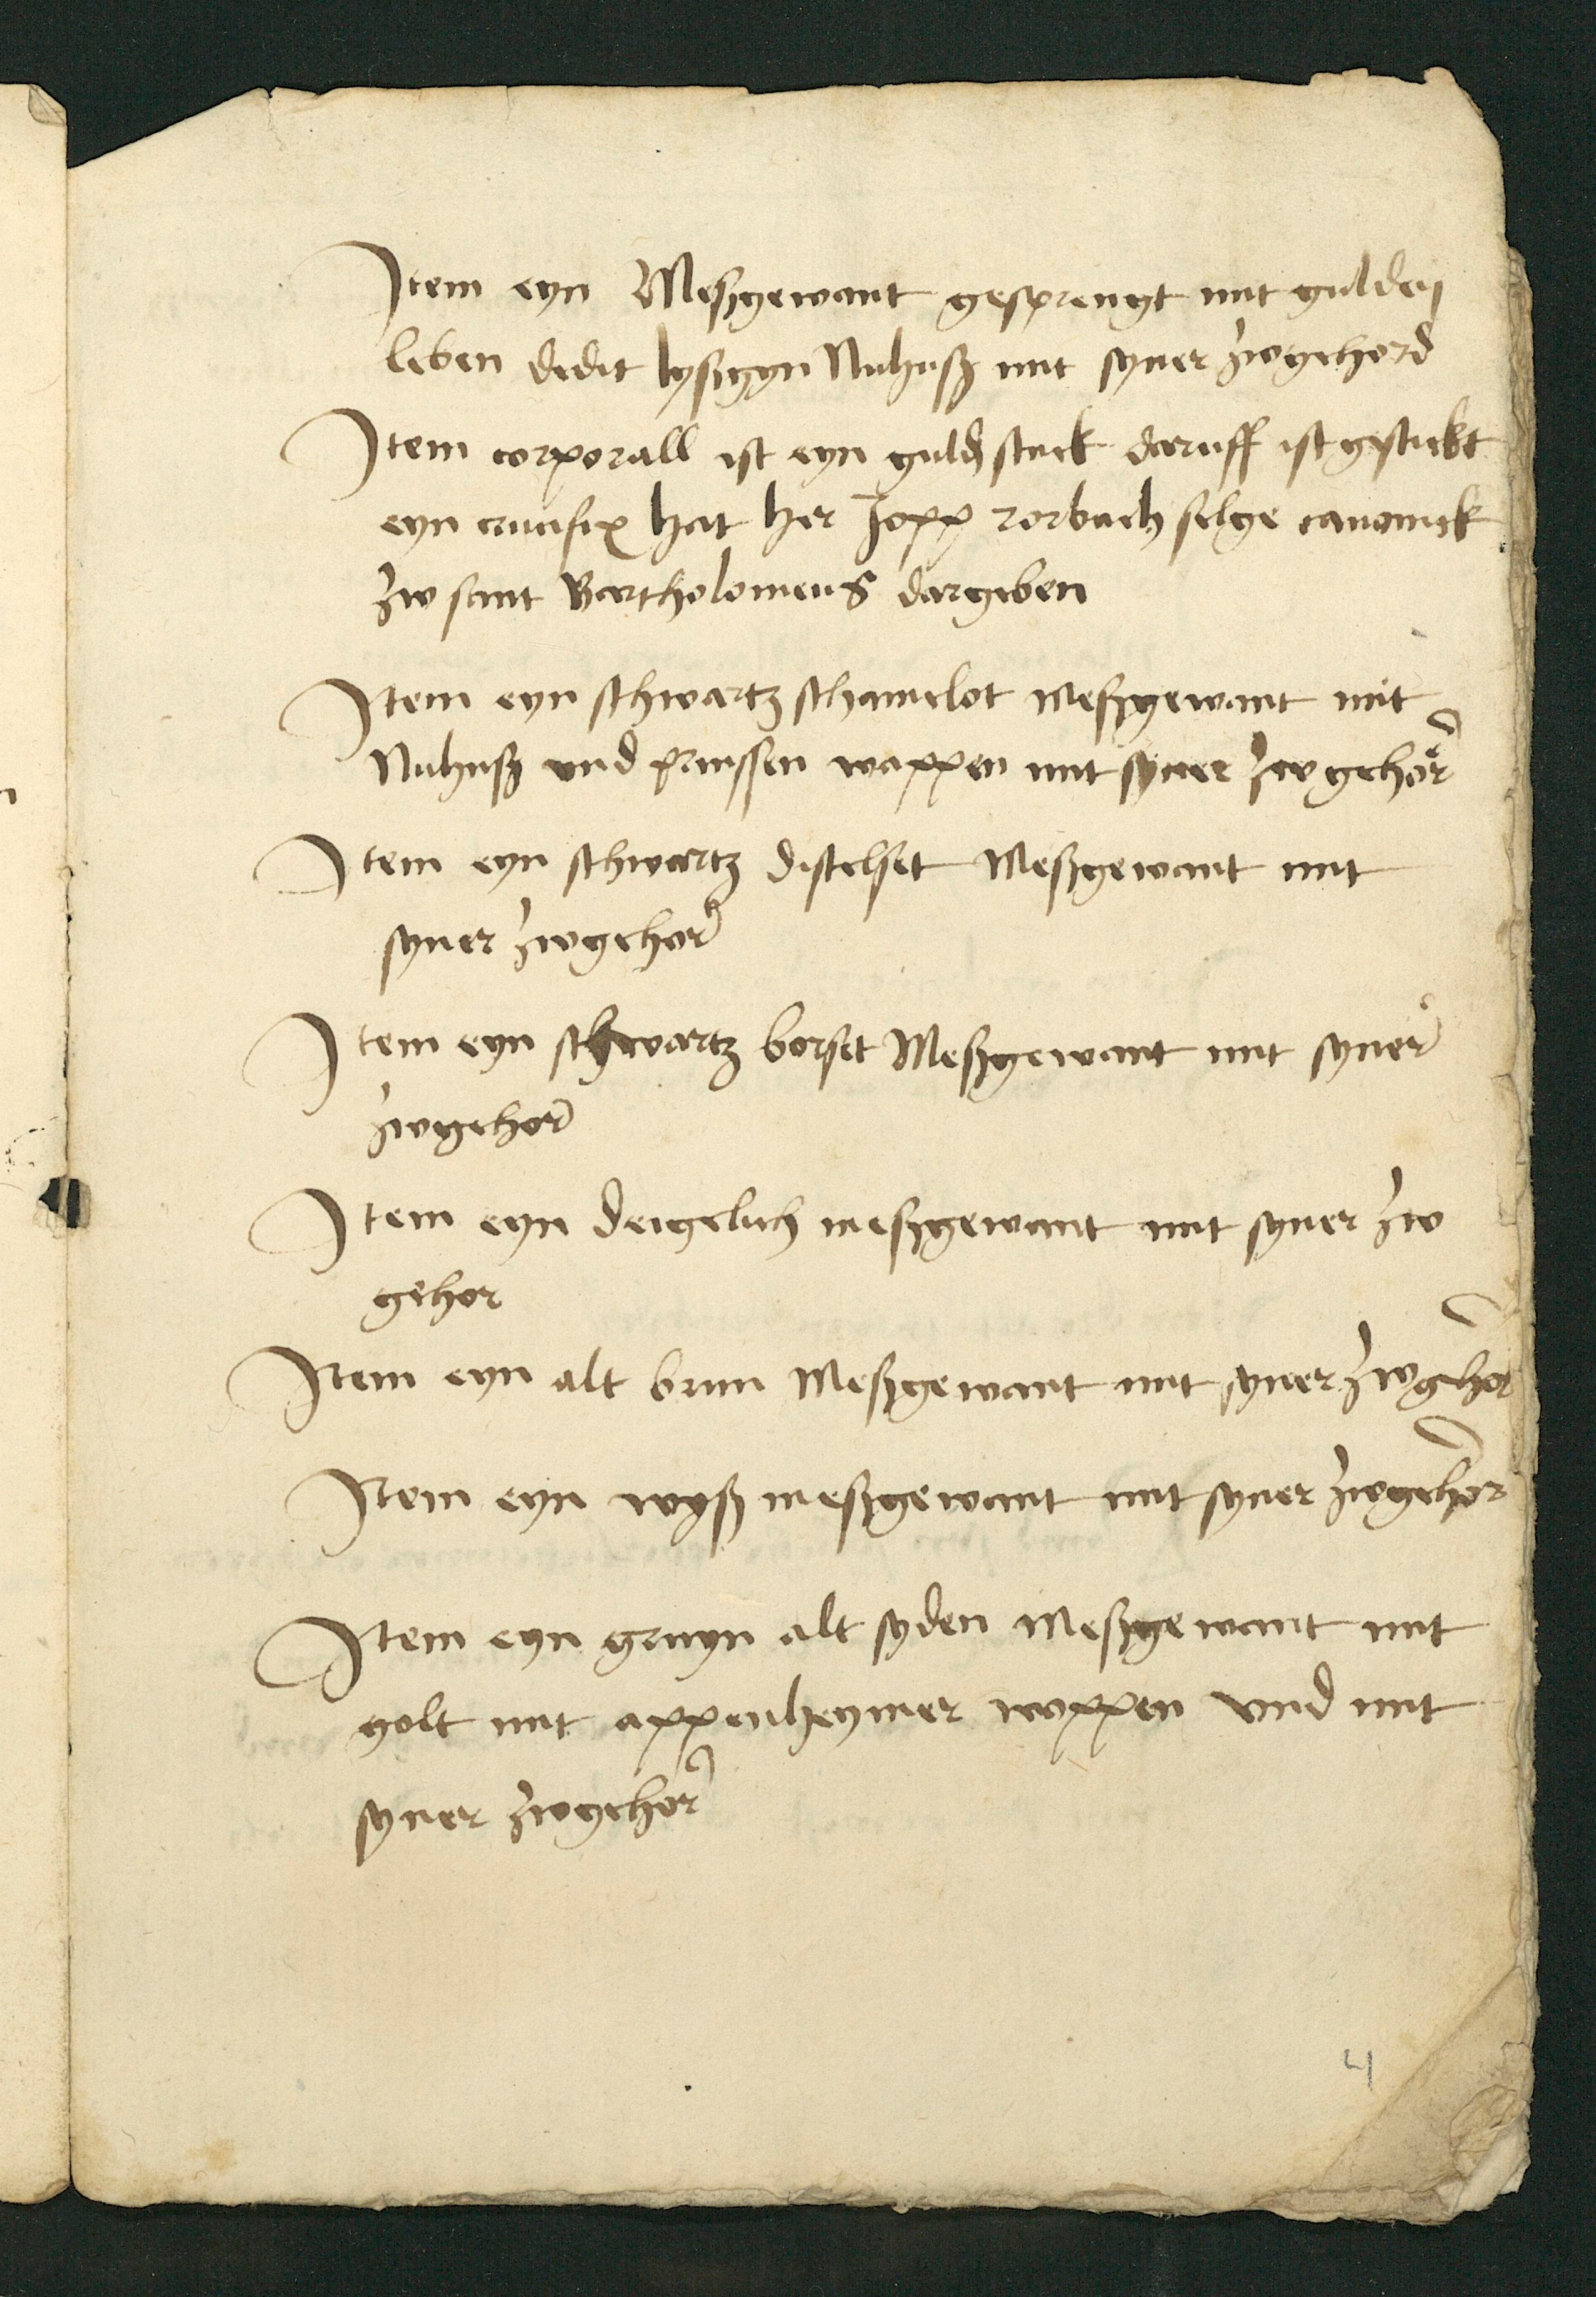 Item eyn Meßgewant gesprengt mit gulden
leben dedit lyßgyn Nuhuß mit syner zwgehord
Item corporall ist eyn guld stuck daruff ist gestickt
eyn crucifix hat her Jopp rorbach selge canonick
zw sant Bartholomeus dargeben
Item eyn schwartz schamelot meßgewant mit
Nuhuß vnd prussen wappen mit syner zwgehor
Item eyn schwartz distelset Meßgewant mit
syner zwgehor
Item eyn schwartz borset Meßgewant mit syner
zwgehor
Item eyn deigelich meßgewant mit syner zw
gehor
Item eyn alt brun Meßgewant mit syner zwgehor
Item eyn wyß meßgewant mit syner zwgehor
Item eyn gruyn alt syden Meßgewant mit
golt mit appenheymer woppen vnd mit
syner zwgehor
4